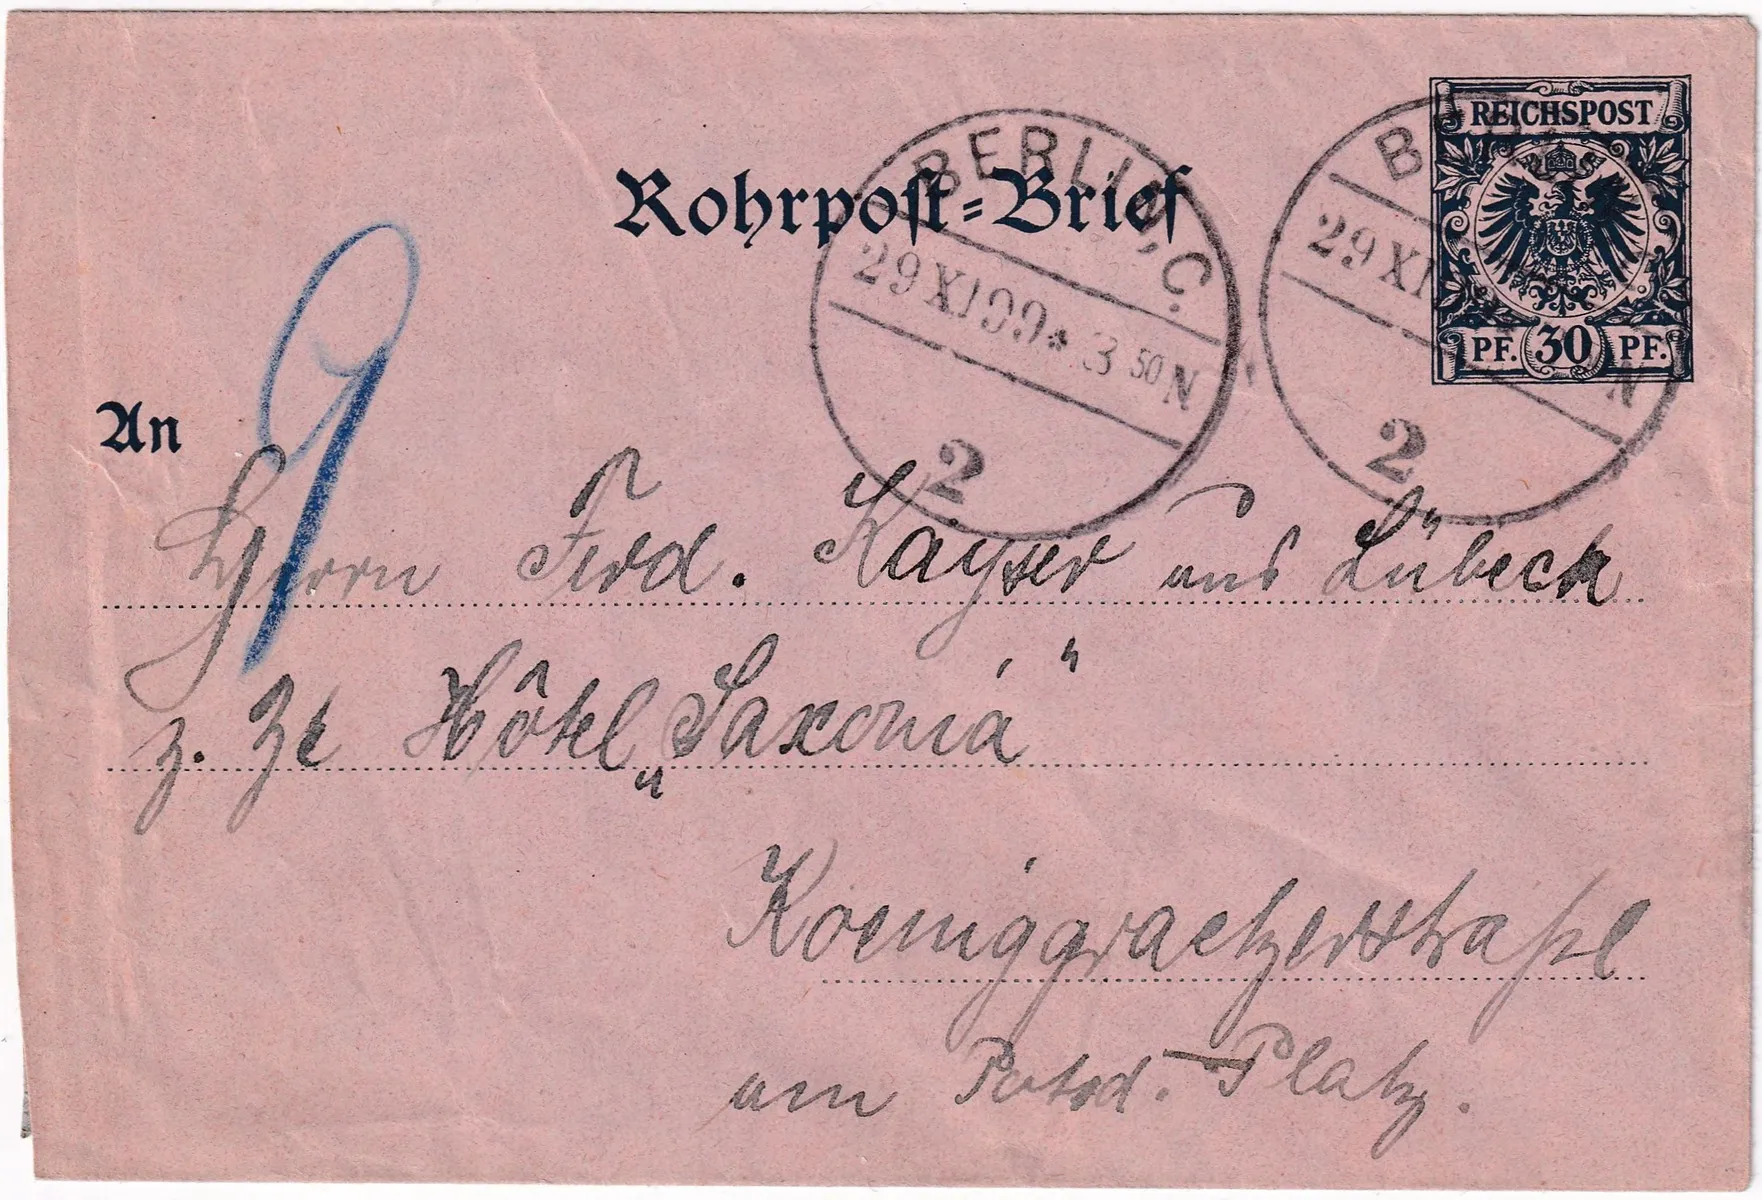 REICHSPOST
PF. 30 PF.
Rohrpost-Brief
BERLIN, C.
29 XI 99 * 3 50 N
2
29 XI
N
2
9
An
Herrn Ferd. Kayser aus Lübeck
z. Zt Hôtel „Saxonia“
Koeniggraetzerstraße
am Potsd.-Platz.